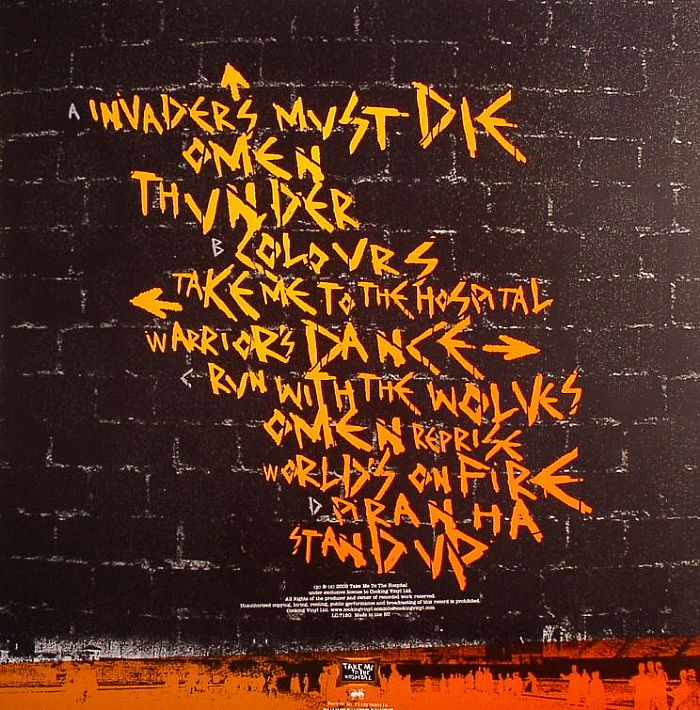 A INVADERS MUST DIE
OMEN
THUNDER
B COLOURS
TAKE ME TO THE HOSPITAL
WARRIOR'S DANCE
C RUN WITH THE WOLVES
OMEN REPRISE
WORLD'S ON FIRE
D PIRANHA
STAND UP
(p) & (c) 2009 Take Me To The Hospital
under exclusive licence to Cooking Vinyl Ltd.
All Rights of the producer and owner of recorded work reserved.
Unauthorised copying, hiring, renting, public performance and broadcasting of this record is prohibited.
Cooking Vinyl Ltd.
Made in the EU
TAKE ME
TO THE
HOSPITAL